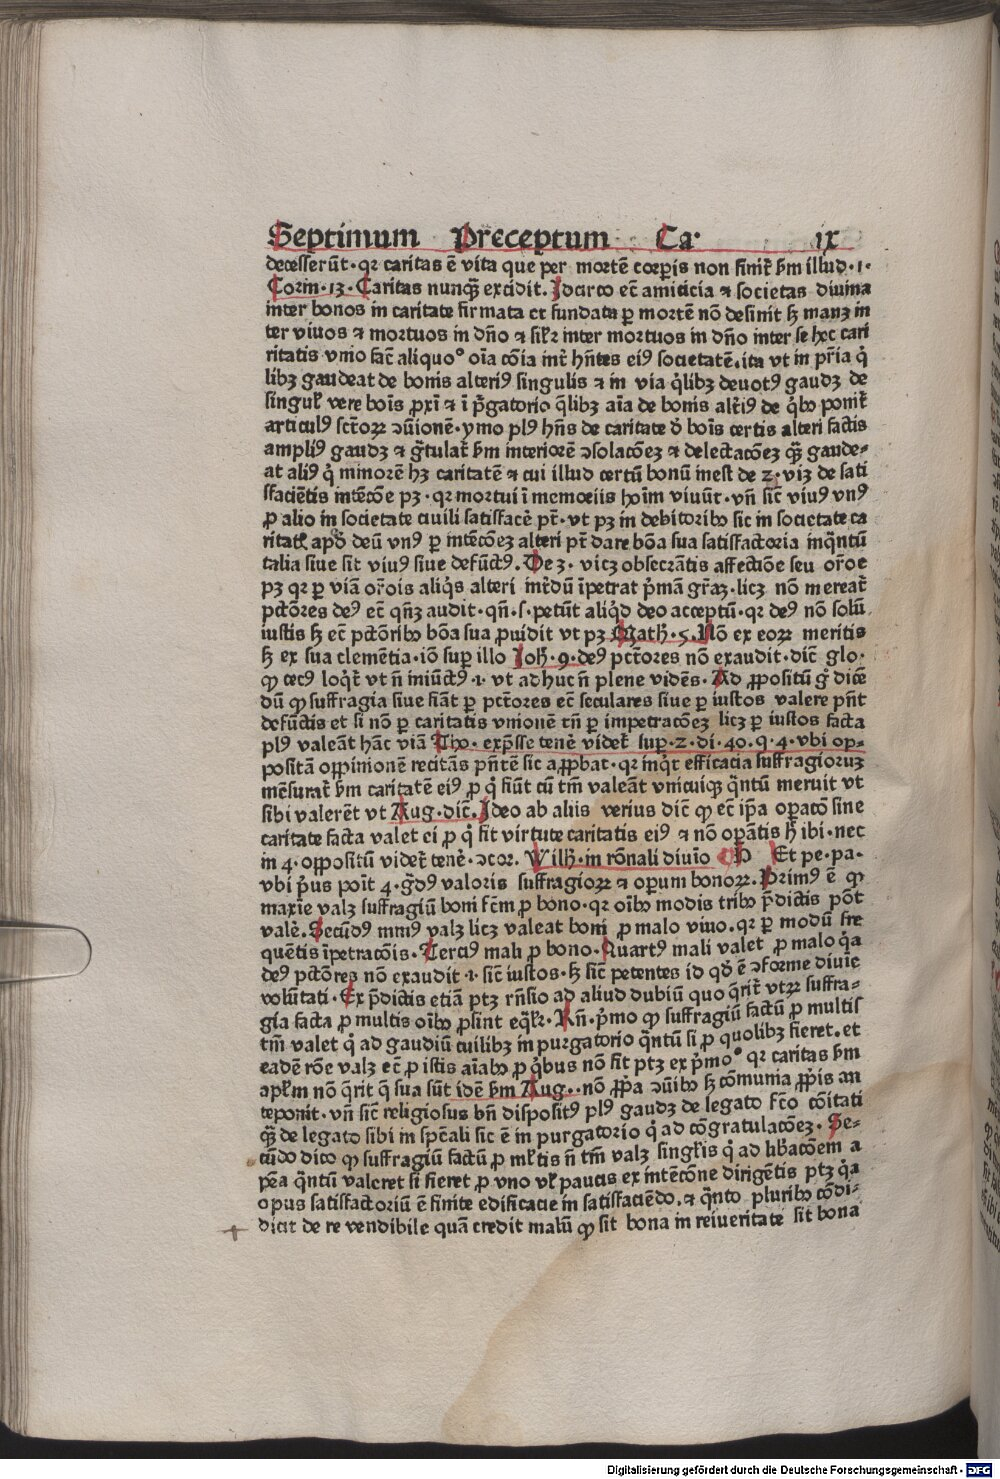 Septimum P̃ceceptum Ca· ix
decesserũt · qꝛ caritas ẽ vita que per mortẽ corp̱is non finit̃ ẜm illud · 1 ·
Corin · 13 · Caritas nunqꝫ̃ excidit . Idcirco ec̃ amiticia ⁊ societas diuina
inter bonos in caritate firmata et fundata ꝑ mortẽ nõ desinit sꝫ manꝫ in
ter viuos ⁊ mortuos in dño ⁊ sil̃r inter mortuos in dño inter se hec cari
ritatis vnio fac̃ aliquo° oĩa cõia int̃ hñtes eiꝰ societatẽ . ita vt in pr̃ia q̇
libꝫ gaudeat de bonis alteriꝰ singulis ⁊ in via q̇libꝫ deuotꝰ gaudꝫ de
singul̃ vere bois ꝓxĩ ⁊ ĩ p̃gatorio q̃libꝫ aĩa de bonis alt̃iꝰ de q̇bꝰ ponit̃
articulꝰ sc̃toꝝ ꝯũionẽ · ymo plꝰ hñs de caritate ð bois certis alteri factis
ampliꝰ gaudꝫ ⁊ g̃tulat̃ ẜm interiorẽ ꝯsolacõeꝫ ⁊ delectacõeꝫ qꝫ̃ gaude⸗
at aliꝰ q̇ minorẽ hꝫ caritatẽ ⁊ cui illud certũ bonũ inest de 2 · viꝫ de sati
sfaciẽtis intẽcõe pꝫ · qꝛ mortui ĩ memoriis hoĩm viuũt · vñ sic̃ viuꝰ vnꝰ
ꝓ alio in societate ciuili satisfacẽ pt̃ · vt pꝫ in debitoribꝰ sic in societate ca
ritatꝭ apð deũ vnꝰ ꝑ intẽcõeꝫ alteri pt̃ dare bõa sua satisfactoria inq̃ntũ
talia siue sit viuꝰ siue defũctꝰ . De 3 · vicꝫ obsecrãtis affectiõe seu or̃oe
pꝫ qꝛ ꝑ viã or̃ois aliq̇s alteri int̃dũ ĩpetrat p̃mã gr̃aꝫ · licꝫ nõ mereat̃
pctõres deꝰ ec̃ qñꝫ audit · qñ · s · petũt aliq̇d deo acceptũ · qꝛ deꝰ nõ solũ
iustis sꝫ ec̃ pctõribꝰ bõa sua ꝓuidit vt pꝫ Math · 5 · Nõ ex eoꝝ meritis
sꝫ ex sua clemẽtia · iõ sup illo Joh̃ · 9 · deꝰ pct̃ores nõ exaudit · dic̃ glo ·
ꝙ cecꝰ loq̇t̃ vt ñ iniũctꝰ · 1 · vt adhuc ñ plene vidẽs . Ad ꝓpositũ g̊ dicẽ
dũ ꝙ suffragia siue fiãt ꝑ pct̃ores ec̃ seculares siue ꝑ iustos valere pñt
defũctis et si nõ ꝑ caritatis vnionẽ tñ ꝑ impetracõeꝫ licꝫ ꝑ iustos facta
plꝰ valeãt hãc viã Tho · exp̃sse tenẽ videt̃ sup · 2 · di · 40 · q · 4 · vbi op⸗
positã oppinionẽ recitãs pñtẽ sic aꝓbat · qꝛ inq̇t efficacia suffragioruꝫ
mẽsurat̃ ẜm caritatẽ eiꝰ ꝓ q̇ fiũt cũ tm̃ valeãt vnicuiqꝫ q̃ntũ meruit vt
sibi valerẽt vt Aug · dic̃ . Ideo ab aliis verius dic̃ ꝙ ec̃ ip̃a oꝑacõ sine
caritate facta valet ei ꝓ q̇ fit virtute caritatis eiꝰ ⁊ nõ oꝑãtis h̃ ibi · nec
in 4 · oppositũ videt̃ tenẽ · ꝯcor . Wilh̃ · in rõnali diuĩo ¶ H Et pe · pa ·
vbi p̃us poĩt 4 · g̃dꝰ valoris suffragioꝝ ⁊ operum bonoꝝ . Primꝰ ẽ ꝙ
maxĩe valꝫ suffragiũ boni fc̃m ꝓ bono · qꝛ oĩbꝰ modis tribꝰ p̃dictis põt
valẽ . Secũdꝰ minꝰ valꝫ licꝫ valeat boni ꝓ malo viuo . qꝛ ꝑ modũ fre
quẽtis ĩpetracõis . Terciꝰ mali ꝓ bono . Quartꝰ mali valet ꝓ malo q̇a
deꝰ pctõres nõ exaudit · 1 · sic̃ iustos · sꝫ sic̃ petentes id qð ẽ ꝯforme diuĩe
volũtati . Ex p̃dictis etiã ptꝫ rñsio ad aliud dubiũ quo q̃rit̃ vtꝝ suffra⸗
gia facta ꝓ multis oĩbꝰ ꝓsint eq̃lr . Rñ · p̃mo ꝙ suffragiũ factũ ꝓ multis
tm̃ valet q̇ ad gaudiũ cuilibꝫ in purgatorio q̃ntũ si ꝓ quolibꝫ fieret . et
eadẽ rõe valꝫ ec̃ ꝓ istis aĩabꝰ ꝓ q̇bus nõ fit ptꝫ ex p̃mo° qꝛ caritas ẜm
apl̃m nõ q̃rit q̃ sua sũt idẽ ẜm Aug . . nõ ꝓp̃a ꝯũibꝰ sꝫ cõmunia ꝓp̃is an
teponit · vñ sic̃ religiosus bñ dispositꝰ plꝰ gaudꝫ de legato fc̃o cõitati
qꝫ̃ de legato sibi in spc̃ali sic ẽ in purgatorio q̇ ad cõgratulacõeꝫ . Se⸗
cũdo dico ꝙ suffragiũ factũ ꝓ ml̃tis ñ tm̃ valꝫ singlis q̇ ad lib̃acõem a
pẽa q̃ntũ valeret si fieret ꝓ vno vl̃ paucis ex intẽcõne dirigẽtis ptꝫ q̇a
opus satisfactoriũ ẽ finite edificacie in satisfaciẽdo . ⁊ q̃nto pluribꝰ cõdi⸗
dicit de re vendibile quã credit malũ ꝙ sit bona in reiueritate sit bona
Digitalisierung gefördert durch die Deutsche Forschungsgemeinschaft · DFG